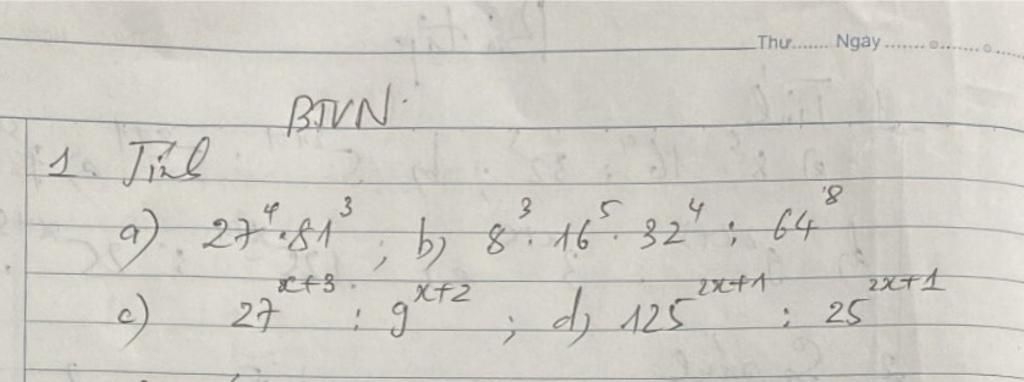 Thứ....... Ngày ....................
BTVN.
1. Tính
a) 27⁴.81³ ; b) 8³.16⁵.32⁴ : 64⁸
c) 27ˣ⁺³ : 9ˣ⁺² ; d) 125²ˣ⁺¹ : 25²ˣ⁺¹